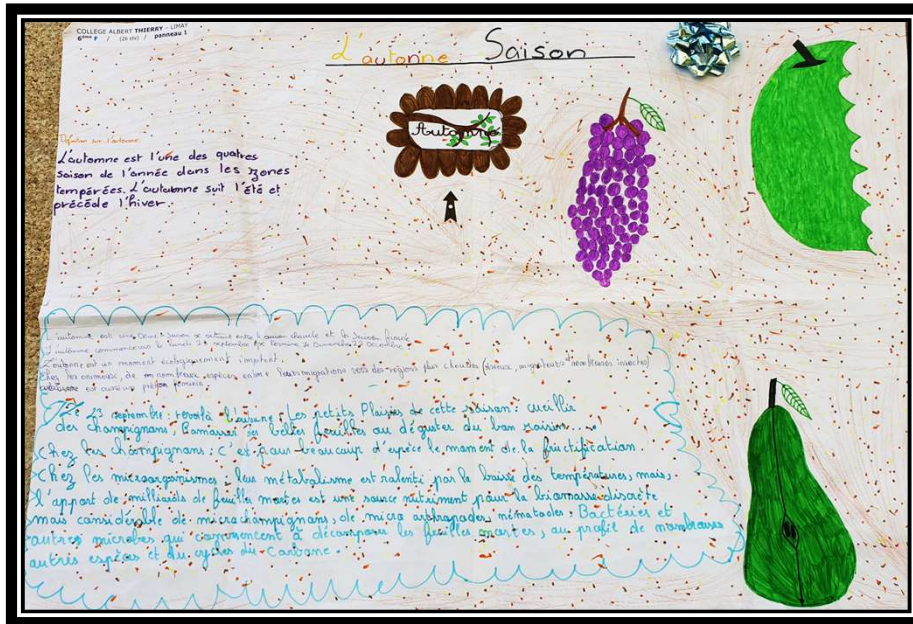 COLLEGE ALBERT THIERRY - LIMAY
6ème F / (26 elv) / panneau 1
L'automne : Saison
Automne
Définition sur l'automne
L'automne est l'une des quatres
saison de l'année dans les zones
tempérées. L'automne suit l'été et
précède l'hiver.
L'automne est une Demi-Saison se entre saison chaude et la saison
L'automne commencera le lundi septembre Dimanche Décembre
est un moment écologiquement
Chez les animaux, de nombreux espèces migrations vers des régions plus chaudes (oiseaux, migrateurs nombreuses insectes)
est aussi un prénom féminin.
Le 23 septembre : revoilà Les petits Plaisirs de cette saison : cueillir
des champignons, Ramasser ses belles feuilles ou déguster du bon raisin....
Chez les champignons : c'est pour beaucoup d'espèce le moment de la fructification.
Chez les microorganismes : leur métabolisme est ralenti par la baisse des températures, mais,
l'apport de milliards de feuilles mortes est une source nutriment pour la biomasse discrète
mais considérable de microchampignons, de micro arthropodes, nématodes, Bactéries et
autres microbes qui commencent à décomposer les feuilles mortes, au profit de nombreuses
autres espèces et du cycles du Carbone.